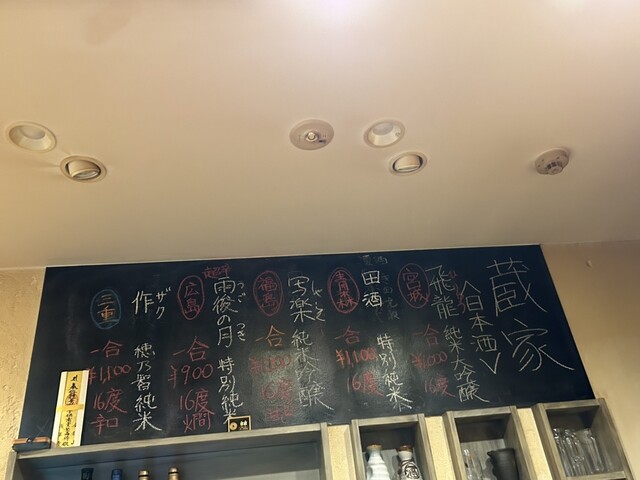 蔵家
〈日本酒〉
宮城
飛龍
純米吟醸
一合
16度
青森
田酒
特別純米
一合
¥1,100
16度
福島
写楽
純米吟醸
一合
広島
超辛
雨後の月
つき
特別純米
一合
¥900
16度
燗
三重
作
ザク
穂乃智純米
一合
¥1,100
16度
和